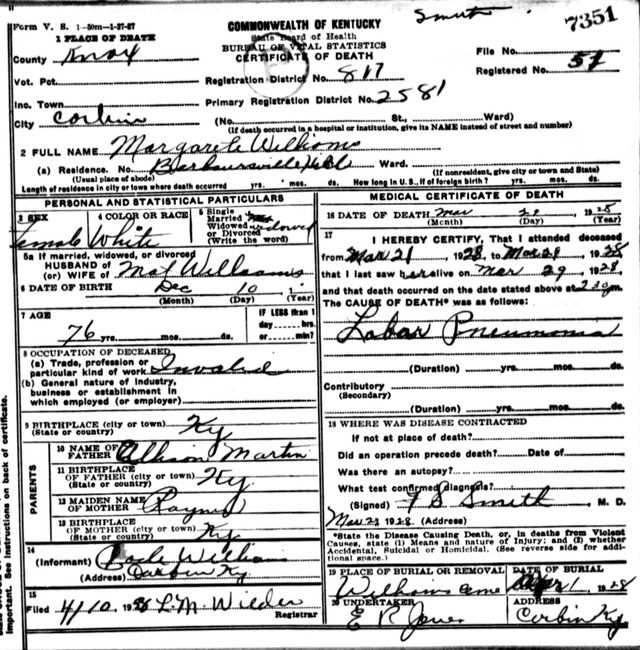 Smith
7351
Form V. S. 1-50m-1-27-27
COMMONWEALTH OF KENTUCKY
State Board of Health
BUREAU OF VITAL STATISTICS
CERTIFICATE OF DEATH
1 PLACE OF DEATH
County Knox
File No.
Registration District No. 817
Registered No. 51
Vot. Pct.
Inc. Town
Primary Registration District No. 2581
City Corbin (No. St., Ward)
(If death occurred in a hospital or institution, give its NAME instead of street and number)
2 FULL NAME Margarete Williams
(a) Residence. No. Barboursville Ward.
(Usual place of abode) (If nonresident, give city or town and State)
Length of residence in city or town where death occurred yrs. mos. ds. How long in U.S., if of foreign birth? yrs. mos. ds.
PERSONAL AND STATISTICAL PARTICULARS
3 SEX Female
4 COLOR OR RACE White
5 Single
Married
Widowed
or Divorced
(Write the word)
widowed
5a If married, widowed, or divorced
HUSBAND OF
(or) WIFE OF Mat Williams
6 DATE OF BIRTH Dec 10 1
(Month) (Day) (Year)
7 AGE
76 yrs. mos. ds.
IF LESS than 1
day hrs.
or min?
8 OCCUPATION OF DECEASED
(a) Trade, profession or
particular kind of work Invalid
(b) General nature of industry,
business or establishment in
which employed (or employer)
9 BIRTHPLACE (city or town) Ky
(State or country)
PARENTS
10 NAME OF
FATHER Martin
11 BIRTHPLACE
OF FATHER (city or town) Ky.
(State or country)
12 MAIDEN NAME
OF MOTHER
13 BIRTHPLACE
OF MOTHER (city or town) Ky
(State or country)
14
(Informant)
(Address) Corbin Ky
15
Filed 4/10, 1928 L. M. Wilder
Registrar
MEDICAL CERTIFICATE OF DEATH
16 DATE OF DEATH Mar 29 1928
(Month) (Day) (Year)
17
I HEREBY CERTIFY, That I attended deceased
from Mar 21 1928, to Mar 29, 1928
that I last saw her alive on Mar 29, 1928,
and that death occurred on the date stated above at 230 m.
The CAUSE OF DEATH* was as follows:
Lobar Pneumonia
(Duration) yrs. mos. ds.
Contributory
(Secondary)
(Duration) yrs. mos. ds.
18 WHERE WAS DISEASE CONTRACTED
If not at place of death?
Did an operation precede death? Date of
Was there an autopsy?
What test confirmed diagnosis?
(Signed) Smith M. D.
1928. (Address)
*State the Disease Causing Death, or, in deaths from Violent
Causes, state (1) Means and nature of Injury; and (2) whether
Accidental, Suicidal or Homicidal. (See reverse side for addi-
tional space.)
19 PLACE OF BURIAL OR REMOVAL DATE OF BURIAL
Williams Cem Apr 1 1928
20 UNDERTAKER ADDRESS
E R Jones Corbin Ky.
important. See instructions on back of certificate.